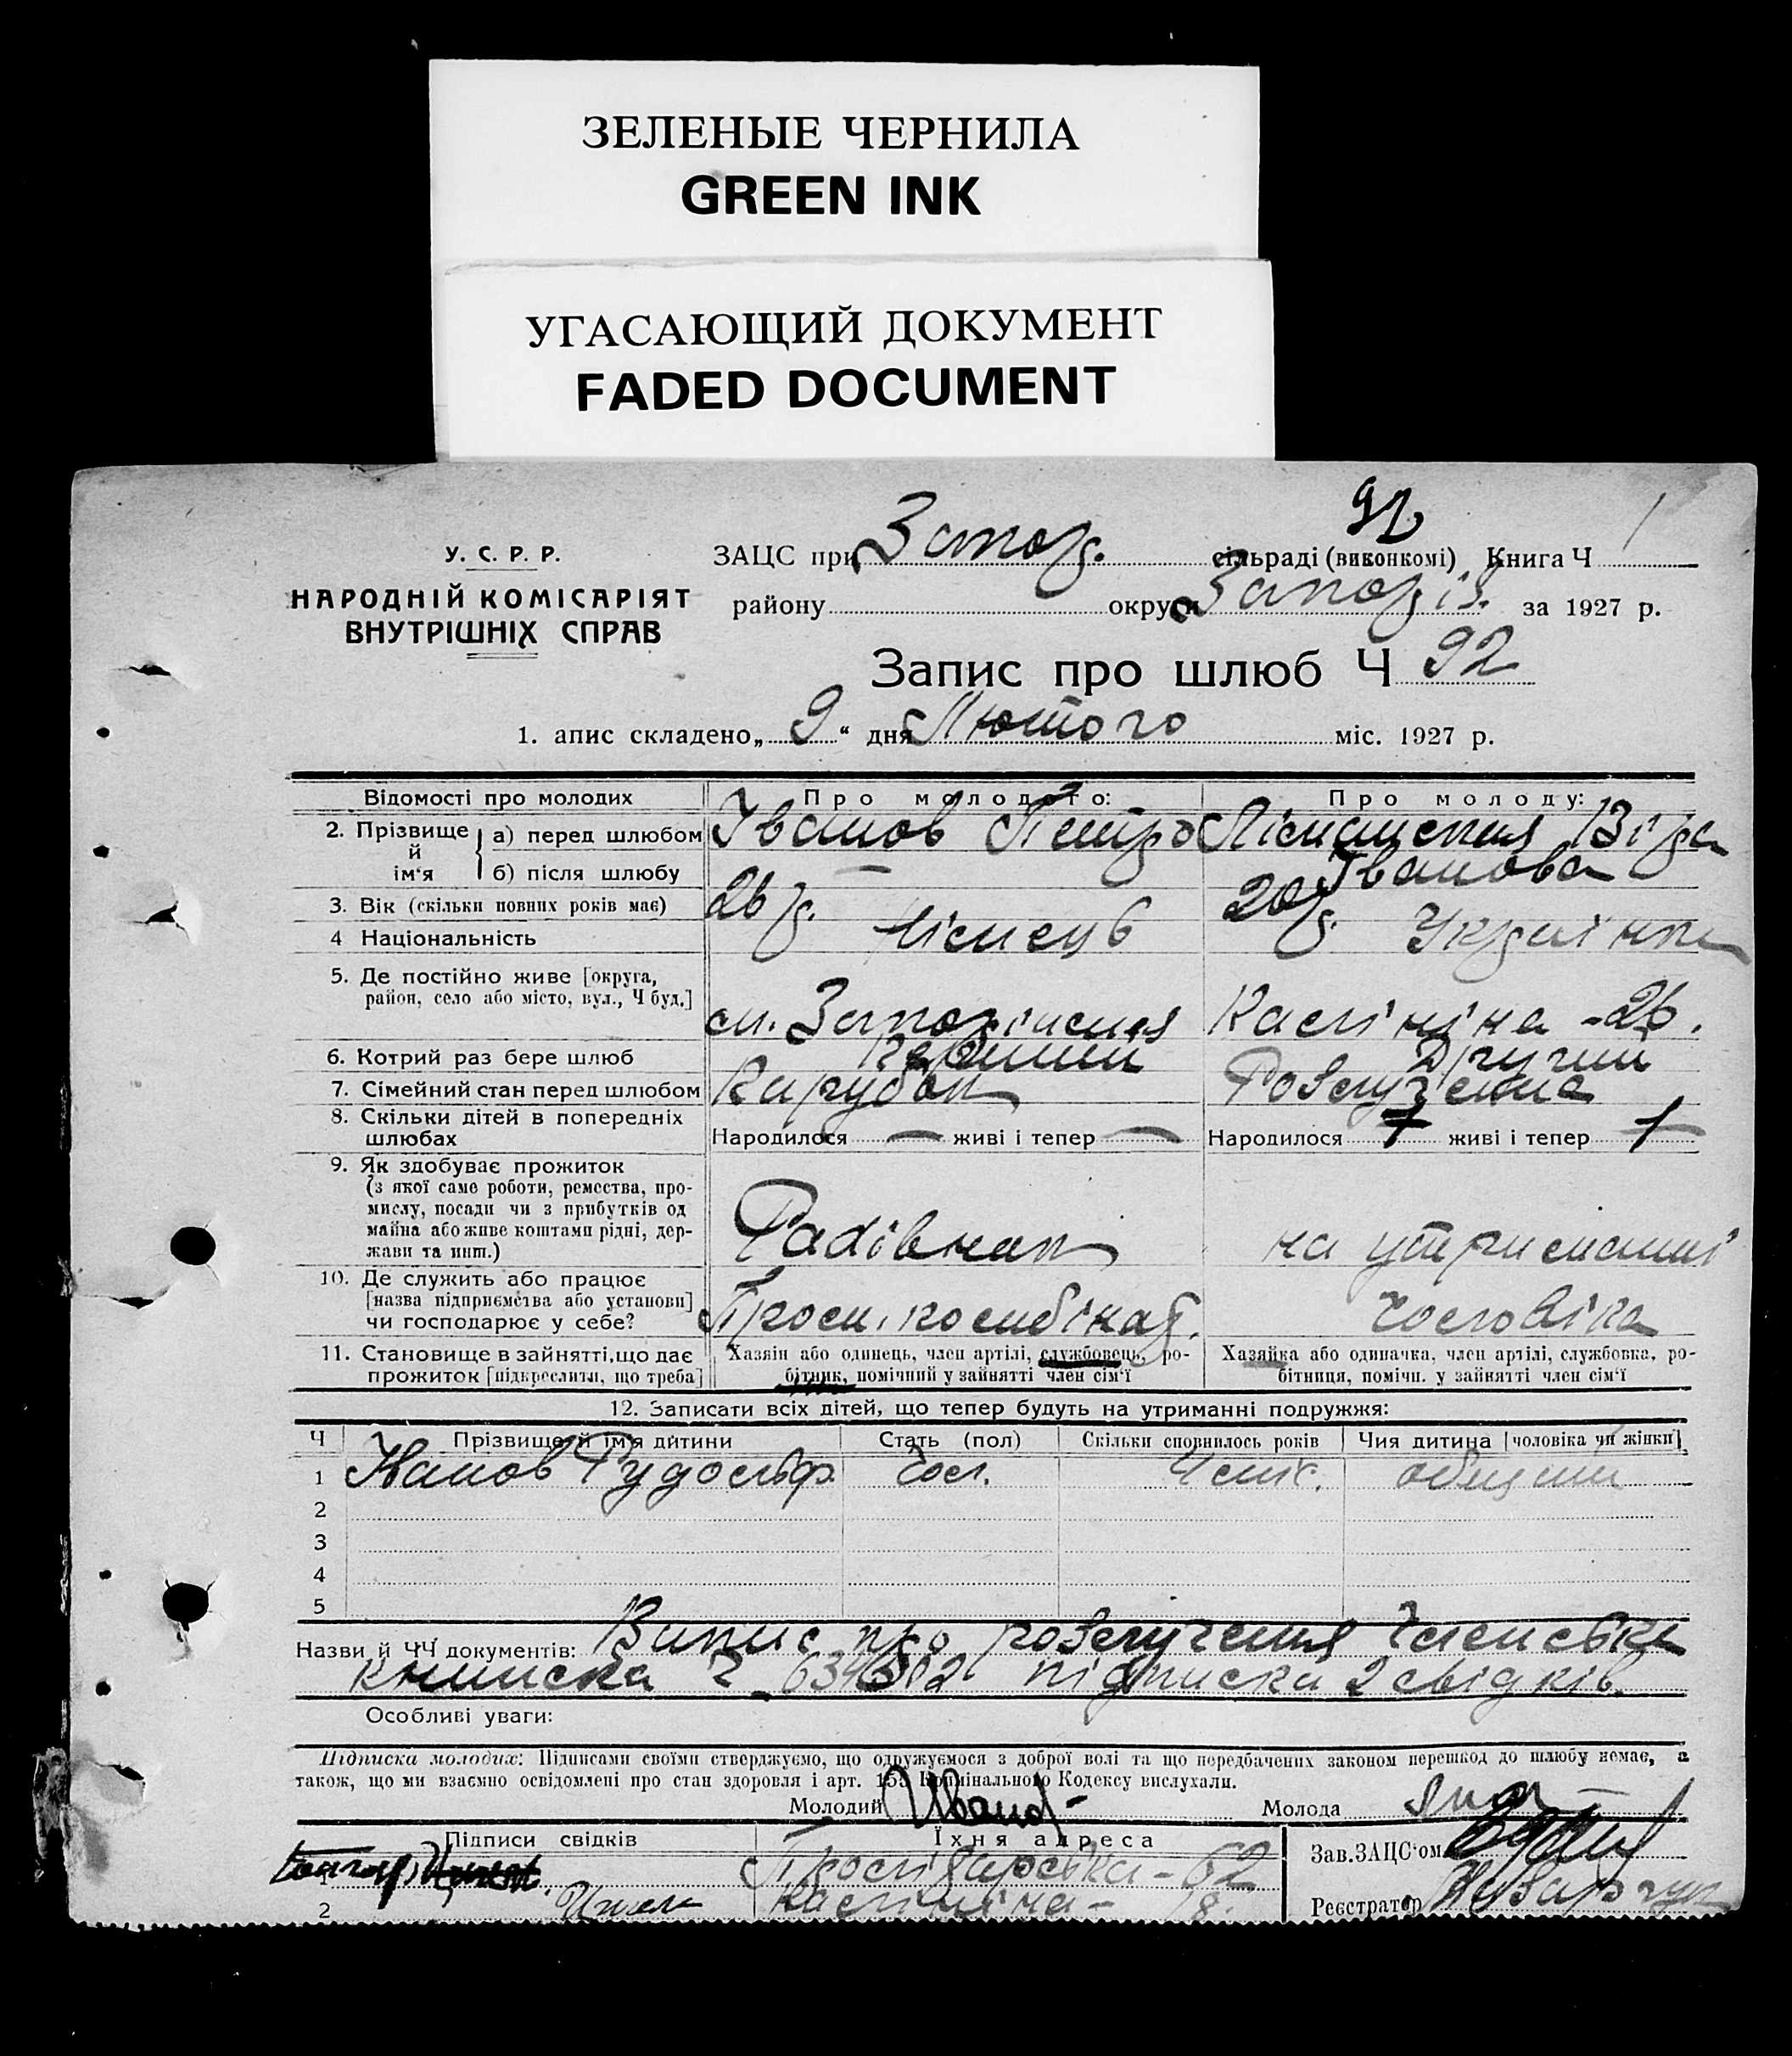 ЗЕЛЕНЫЕ ЧЕРНИЛА
GREEN INK
УГАСАЮЩИЙ ДОКУМЕНТ
FADED DOCUMENT
92
У. С. Р. Р.
НАРОДНІЙ КОМІСАРІЯТ
ВНУТРІШНІХ СПРАВ
ЗАЦС при Запор. сільраді (виконкомі) Книга Ч
району округи за 1927 р.
Запис про шлюб Ч 92
1. апис складено „9“ дня Лютого міс. 1927 р.
Відомості про молодих Про молодого: Про молоду:
2. Прізвище й ім'я а) перед шлюбом Іванов Петро
б) після шлюбу — Іванова
3. Вік (скільки повних років має) 26 р. 20 р.
4 Національність Німець Українка
5. Де постійно живе [округа,
район, село або місто, вул., Ч буд.] Калініна - 26.
6. Котрий раз бере шлюб Первший Другий
7. Сімейний стан перед шлюбом Парубок Розлучена
8. Скільки дітей в попередніх
шлюбах Народилося — живі і тепер — Народилося живі і тепер
9. Як здобуває прожиток
(з якої саме роботи, ремества, про-
мислу, посади чи з прибутків од
майна або живе коштами рідні, дер-
жави та инш.) на утриманні
10. Де служить або працює
[назва підприємства або установи]
чи господарює у себе? чоловіка
11. Становище в зайнятті, що дає Хазяїн або одинець, член артілі, службовець, ро- Хазяйка або одиначка, член артілі, службовка, ро-
прожиток [підкреслити, що треба] бітник, помічний у зайнятті член сім'ї бітниця, помічн. у зайнятті член сім'ї
12. Записати всіх дітей, що тепер будуть на утриманні подружжя:
Ч Прізвище й ім'я дитини Стать (пол) Скільки сповнилось років Чия дитина [чоловіка чи жінки]
1 Іванов Рудольф чол.
2
3
4
5
Назви й ЧЧ документів: Випис про розлучення
книжка підписка 2 свідків.
Особливі уваги:
Підписка молодих: Підписами своїми стверджуємо, що одружуємося з доброї волі та що передбачених законом перешкод до шлюбу немає, а
також, що ми взаємно освідомлені про стан здоровля і арт. 155 Кримінального Кодексу вислухали.
Молодий Молода
Підписи свідків Їхня адреса Зав. ЗАЦС'ом
1 - 62
2 Калініна - Реєстратор